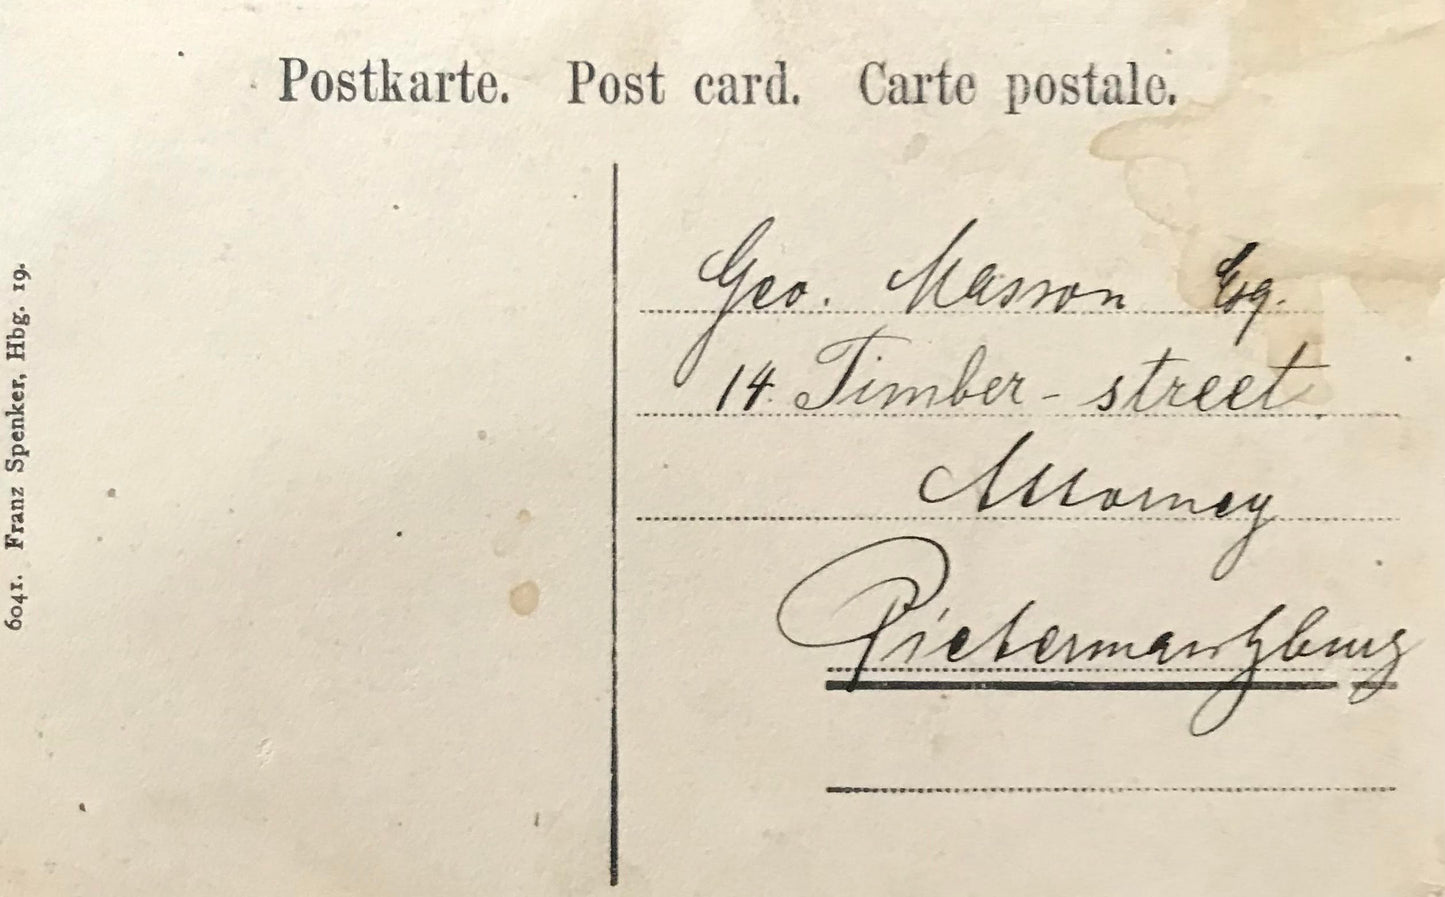 Postkarte. Post card. Carte postale.
Geo. Masson Esq.
14 Timber - street
Attorney
Pietermaritzburg
6041. Franz Spenker, Hbg. 19.